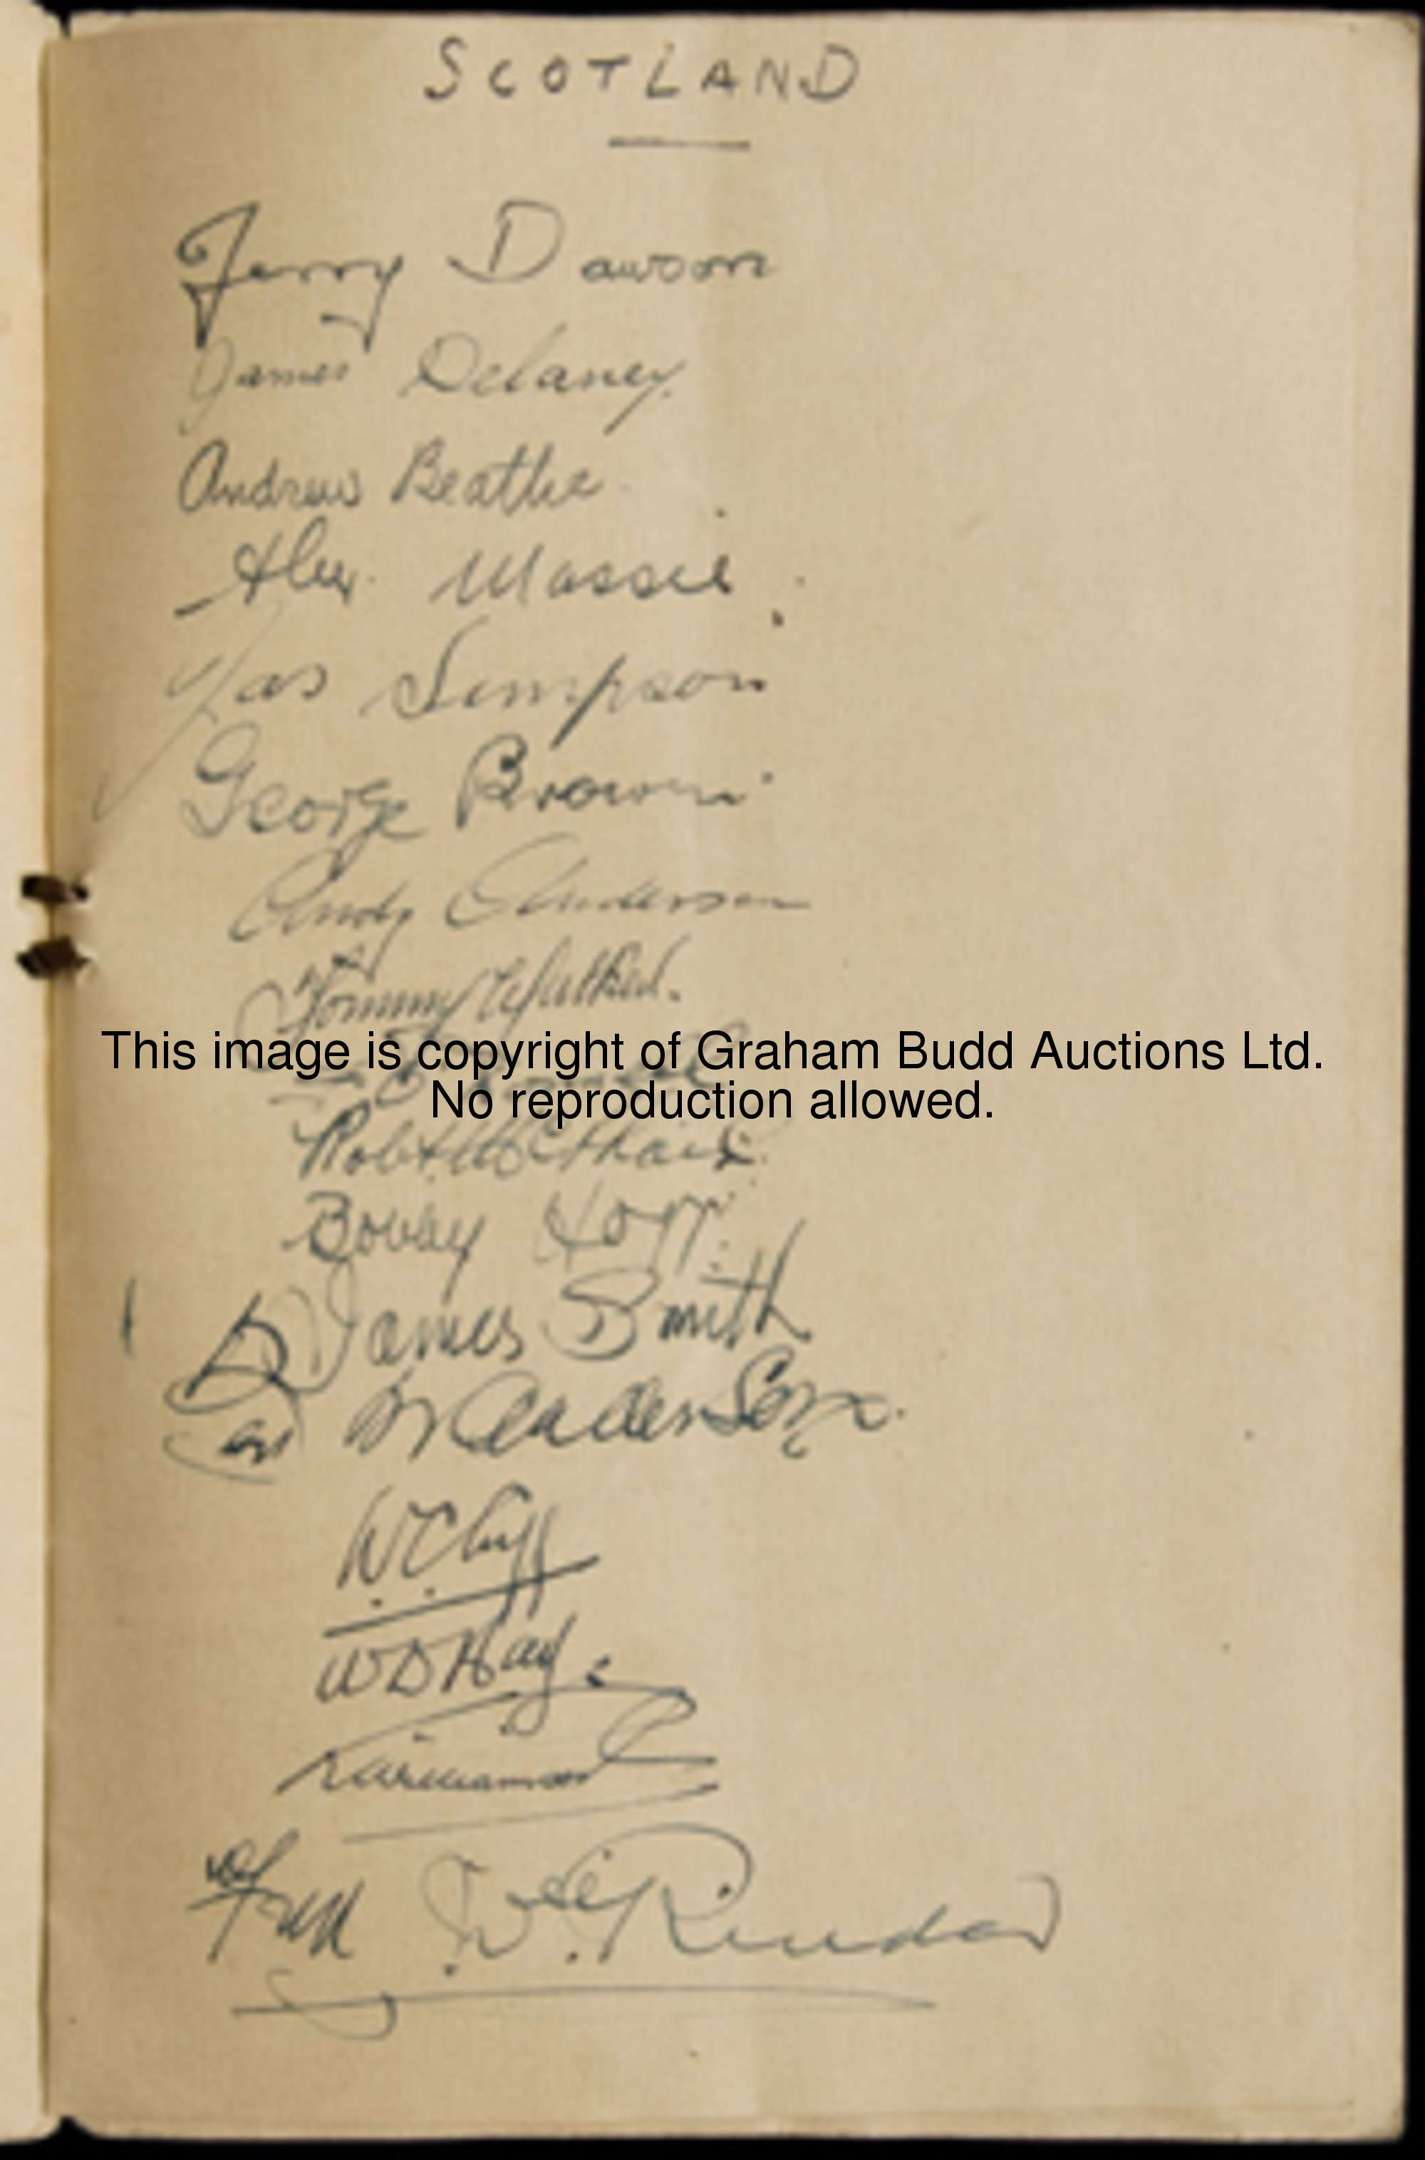 SCOTLAND
Jerry Dawson
James Delaney.
Andrew Beattie
Alex. Massie.
Jas Simpson
George Brown
Andy Anderson
Tommy Walker.
This image is copyright of Graham Budd Auctions Ltd.
No reproduction allowed.
Robt McPhail.
Bobby Hogg.
James Smith
W. C. Cuff
W D Hay.